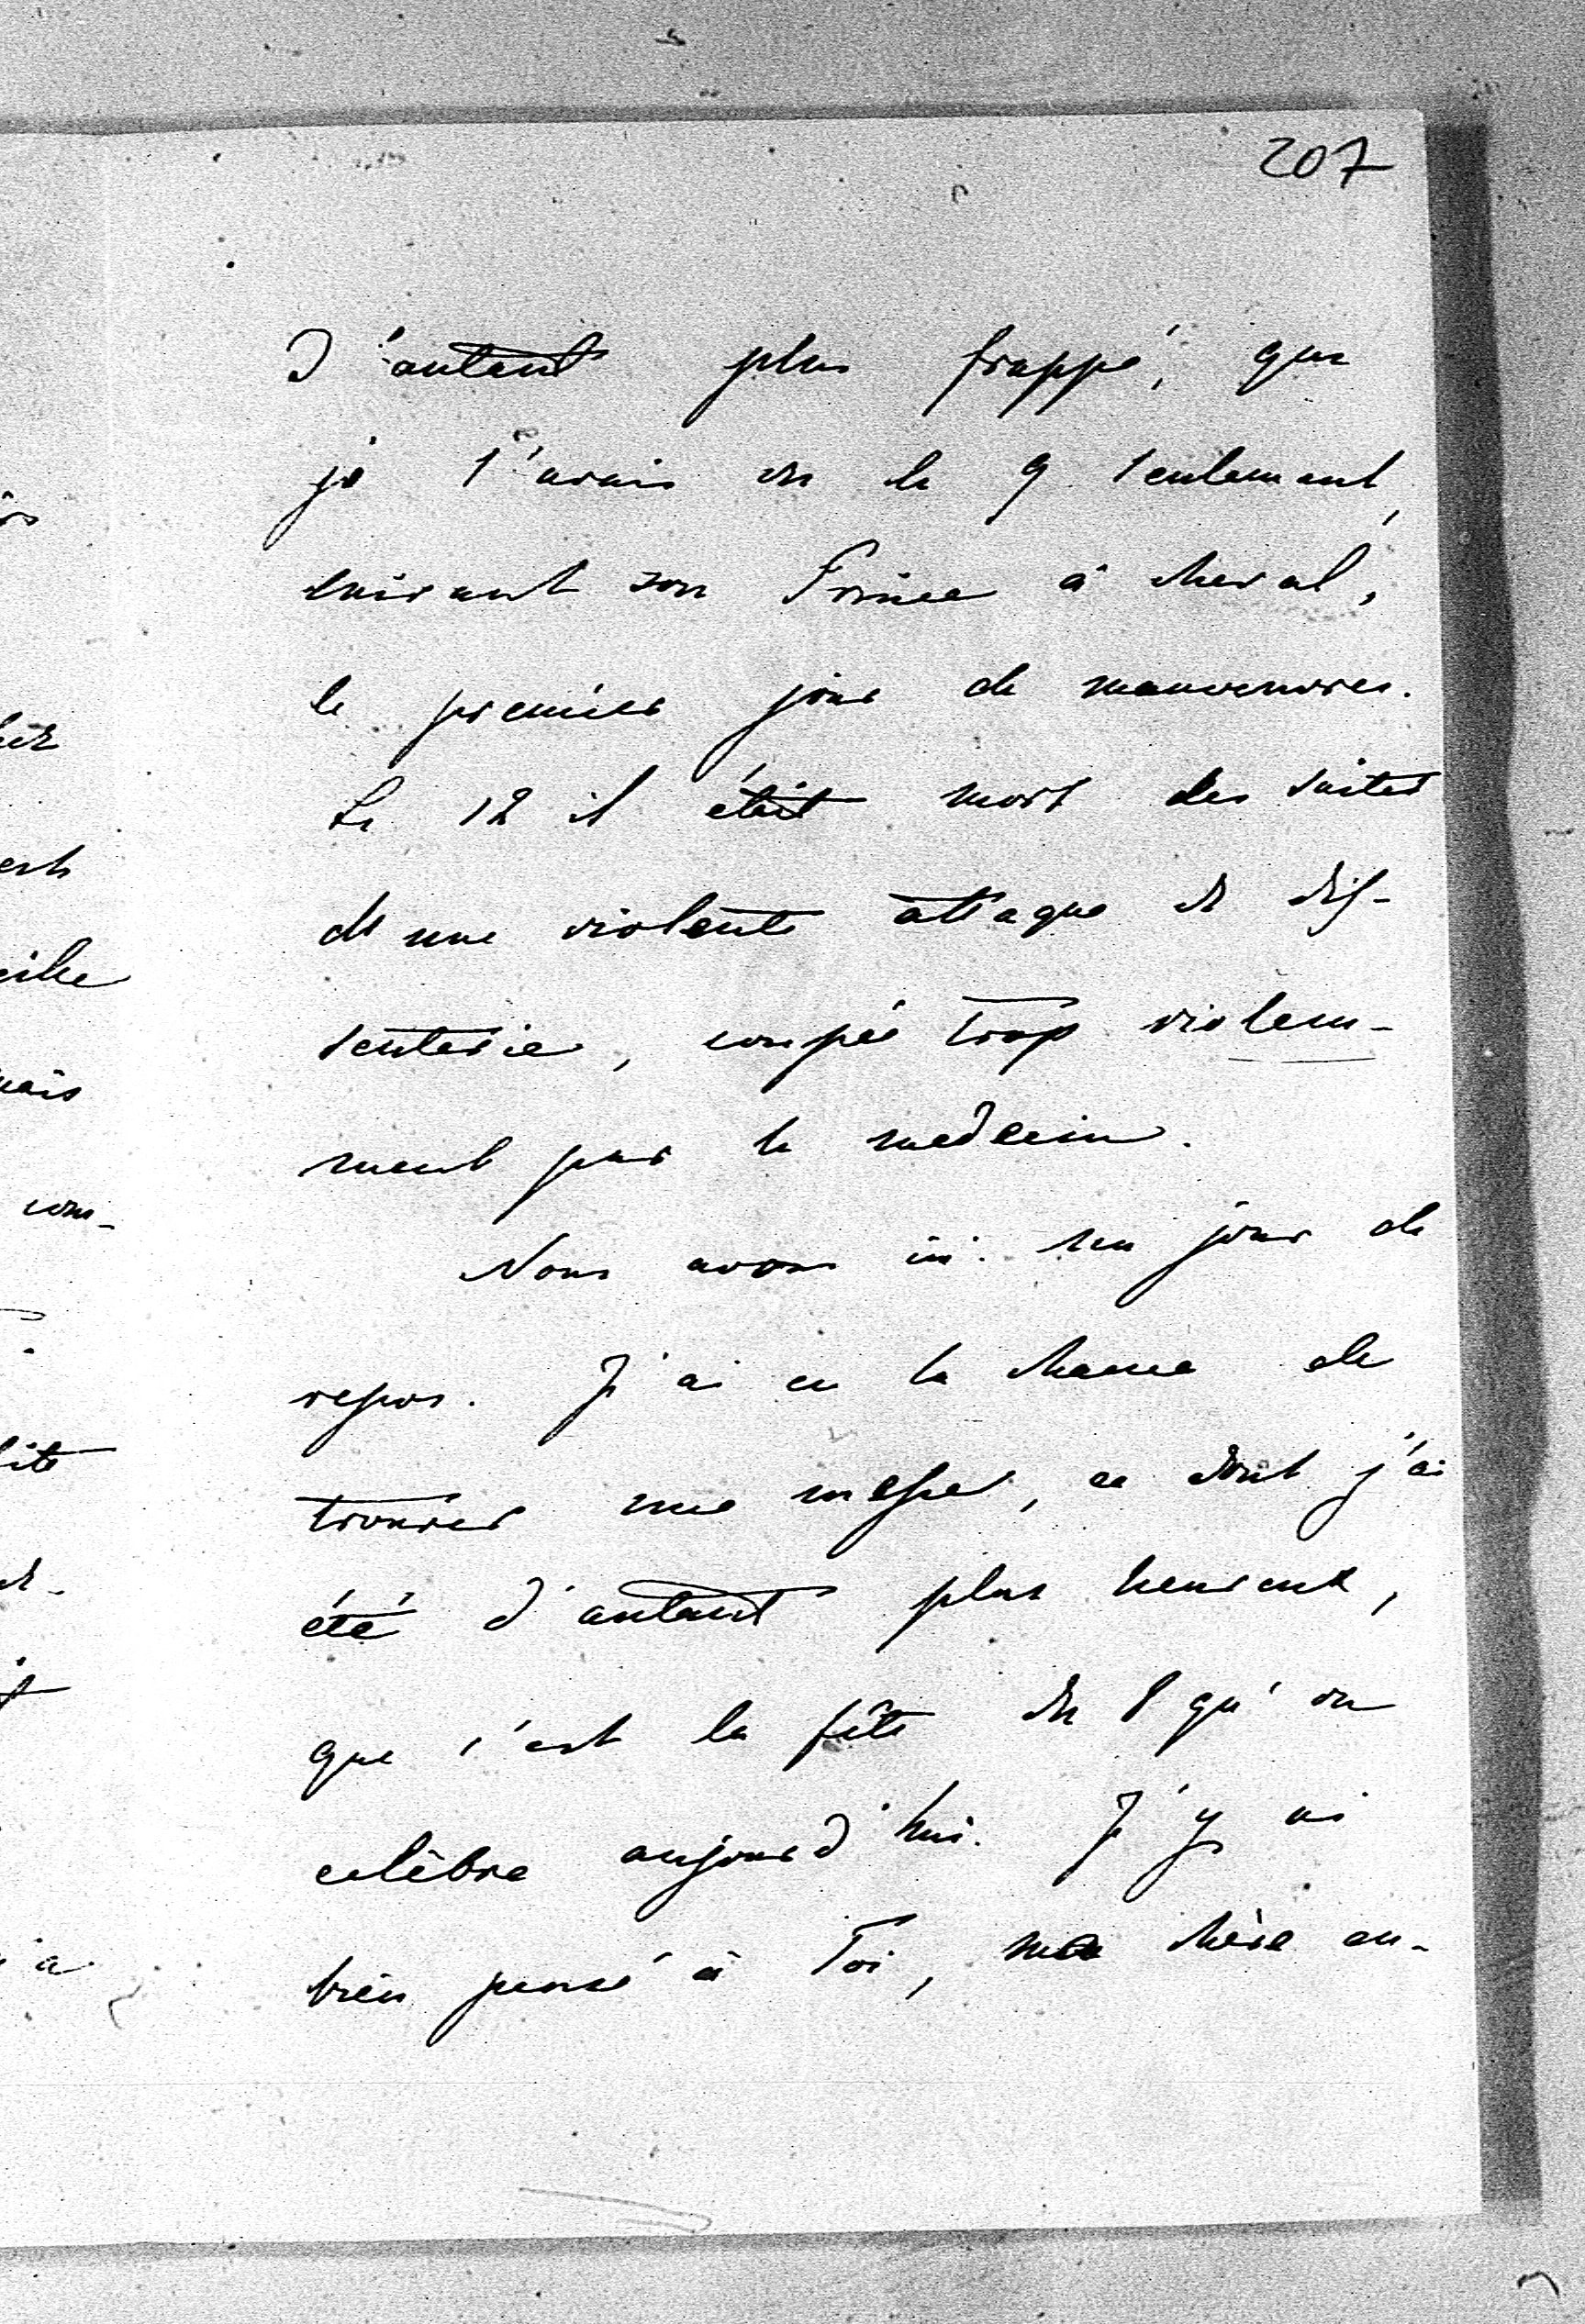 207
d'autant plus frappé, que
je l'avais vu le 9 seulement,
suivant son Prince à cheval,
le premier jour de manoeuvres.
Le 12 il était mort des suites
de une violente attaque de dis-
senterie, coupée trop violem-
ment par le medecin.
Nous avons ici un jour de
repos. J'ai eu la chance de
trouver une messe, ce dont j'ai
été d'autant plus heureux,
que c'est la fête du qu'on
celèbre aujourd'hui. J'y ai
bien pensé à Toi, ma chère en-